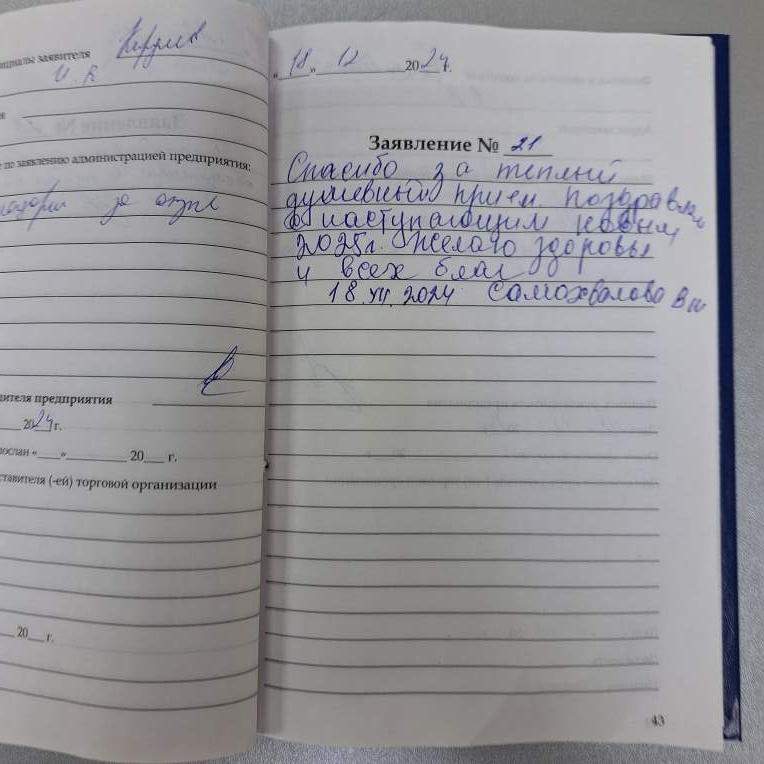 заявителя
и.к
е по заявлению администрацией предприятия:
за
дителя предприятия
2024г.
ослан «___»________ 20___ г.
ставителя (-ей) торговой организации
20___ г.
«18» 12 2024г.
Заявление № 21
Спасибо за теплый
душевный прием поздравляю
с наступающим новым
2025г. желаю здоровья
и всех благ
18.XII.2024 Самохвалова В
43